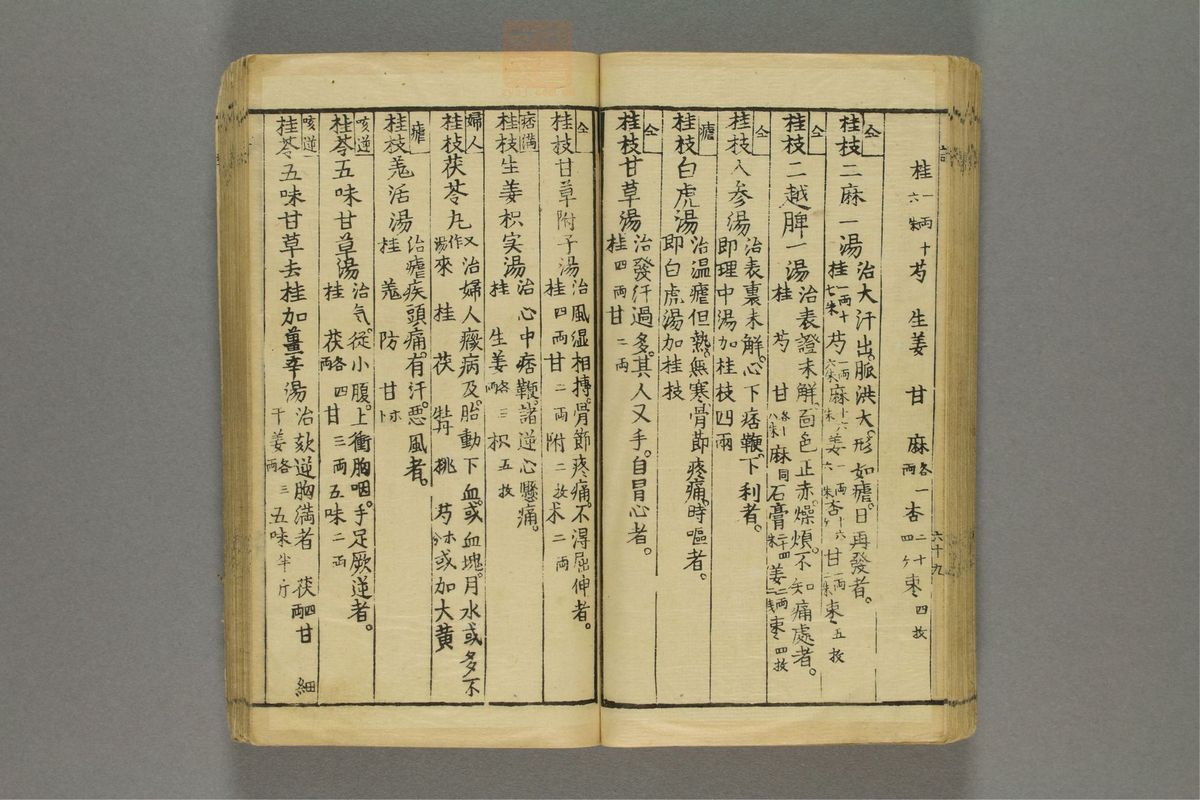 桂一両六朱十芍生姜甘麻各一両杏二十四ケ枣四枚
六十九
仝
桂枝二麻一湯
治大汗出。脈洪大。形如瘧。日再發者。
桂一両十七朱芍一両六朱麻十六朱姜一両六朱杏十六ケ甘一両二朱枣五枚
仝
桂枝二越脾一湯
治表證未解。面色正赤。燥煩。不知痛處者。
桂芍甘各十八朱麻同石膏二十四朱姜一両二戋枣四枚
仝
桂枝人参湯
治表裏未解。心下痞鞕。下利者。
即理中湯加桂枝四兩
瘧
桂枝白虎湯
治温瘧但熱。無寒。骨節疼痛。時嘔者。
即白虎湯加桂枝
仝
桂枝甘草湯
治發汗過多。其人叉手。自冒心者。
桂四両甘二両
仝
桂枝甘草附子湯
治風湿相摶。骨節疼痛。不得屈伸者。
桂四両甘二両附二枚朮二両
痞満
桂枝生姜枳実湯
治心中痞鞕。諸逆心懸痛。
桂生姜各三両枳五枚
婦人
桂枝茯苓丸
又作湯治婦人癥病及。胎動下血。或血塊。月水或多不
來桂茯牡桃芍各等分或加大黄
瘧
桂枝羗活湯
治瘧疾頭痛。有汗。悪風者。
桂羗防甘
咳逆
桂苓五味甘草湯
治気。從小腹。上衝胸咽。手足厥逆者。
桂茯各四両甘三両五味二両
咳逆
桂苓五味甘草去桂加薑辛湯
治欬逆胸満者茯四両甘細
干姜各三両五味半斤